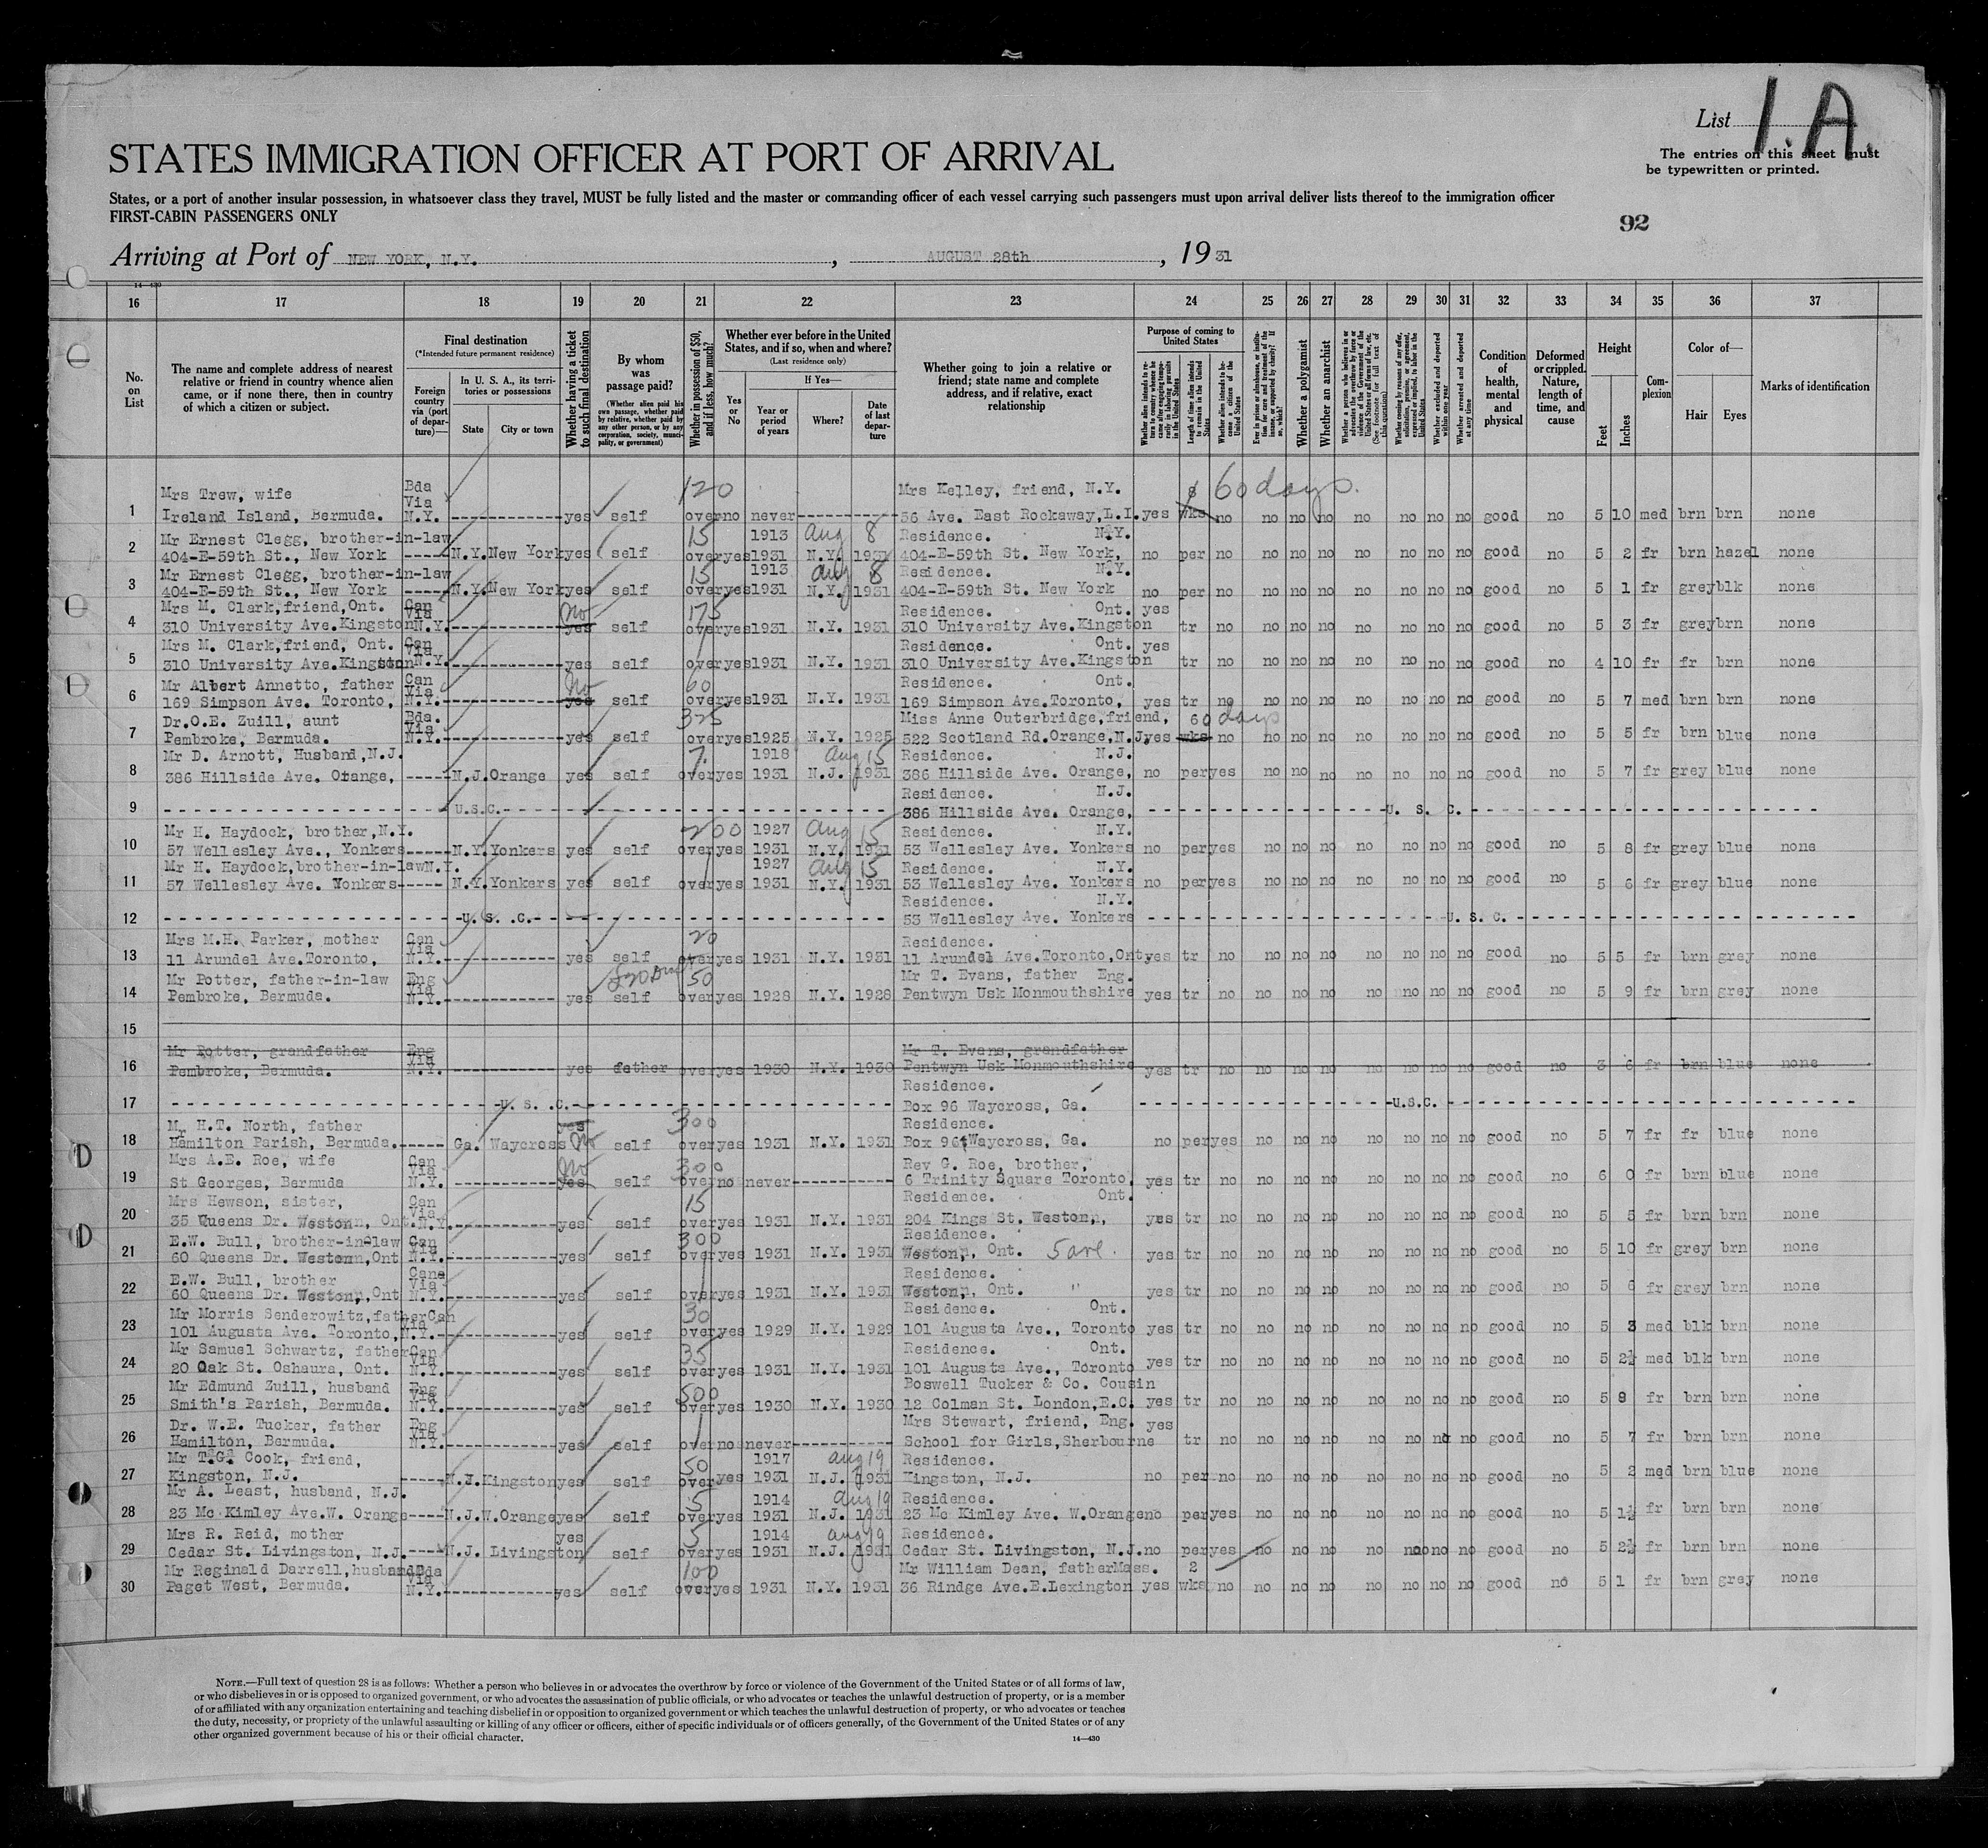 List 1.A.
STATES IMMIGRATION OFFICER AT PORT OF ARRIVAL
The entries on this sheet must
be typewritten or printed.
States, or a port of another insular possession, in whatsoever class they travel, MUST be fully listed and the master or commanding officer of each vessel carrying such passengers must upon arrival deliver lists thereof to the immigration officer
FIRST-CABIN PASSENGERS ONLY
92
Arriving at Port of NEW YORK, N.Y. , AUGUST 28th , 1931
14-430
16 17 18 19 20 21 22 23 24 25 26 27 28 29 30 31 32 33 34 35 36 37
No. on List
The name and complete address of nearest relative or friend in country whence alien came, or if none there, then in country of which a citizen or subject.
Final destination
(*Intended future permanent residence)
Foreign country via (port of departure)—
In U. S. A., its territories or possessions
State
City or town
Whether having a ticket to such final destination
By whom was passage paid?
(Whether alien paid his own passage, whether paid by relative, whether paid by any other person, or by any corporation, society, municipality, or government)
Whether in possession of $50, and if less, how much?
Whether ever before in the United States, and if so, when and where?
(Last residence only)
Yes or No
If Yes—
Year or period of years
Where?
Date of last departure
Whether going to join a relative or friend; state name and complete address, and if relative, exact relationship
Purpose of coming to United States
Whether a polygamist
Whether an anarchist
Whether excluded and deported within one year
Whether arrested and deported at any time
Condition of health, mental and physical
Deformed or crippled. Nature, length of time, and cause
Height
Feet
Inches
Complexion
Color of—
Hair
Eyes
Marks of identification
Mrs Trew, wife Bda Via 120 Mrs Kelley, friend, N.Y. 8 60 days.
1 Ireland Island, Bermuda. N.Y. yes self over no never 36 Ave. East Rockaway, L.I. yes wks no no no no no no no no good no 5 10 med brn brn none
Mr Ernest Clegg, brother-in-law 15 1913 Aug 8 Residence. N.Y.
2 404-E-59th St., New York N.Y. New York yes self over yes 1931 N.Y. 1931 404-E-59th St. New York, no per no no no no no no no no good no 5 2 fr brn hazel none
Mr Ernest Clegg, brother-in-law 15 1913 Aug 8 Residence. N.Y.
3 404-E-59th St., New York N.Y. New York yes self over yes 1931 N.Y. 1931 404-E-59th St. New York no per no no no no no no no no good no 5 1 fr grey blk none
Mrs M. Clark, friend, Ont. Can Via No 175 Residence. Ont. yes
4 310 University Ave. Kingston N.Y. yes self over yes 1931 N.Y. 1931 310 University Ave. Kingston tr no no no no no no no no good no 5 3 fr grey brn none
Mrs M. Clark, friend, Ont. Can Via Residence. Ont. yes
5 310 University Ave. Kingston N.Y. yes self over yes 1931 N.Y. 1931 310 University Ave. Kingston tr no no no no no no no no good no 4 10 fr fr brn none
Mr Albert Annetto, father Can Via No 60 Residence. Ont.
6 169 Simpson Ave. Toronto, N.Y. yes self over yes 1931 N.Y. 1931 169 Simpson Ave. Toronto, yes tr no no no no no no no no good no 5 7 med brn brn none
Dr. O.E. Zuill, aunt Bda. Via 325 Miss Anne Outerbridge, friend, 60 days
7 Pembroke, Bermuda. N.Y. yes self over yes 1925 N.Y. 1925 522 Scotland Rd. Orange, N.J. yes wks no no no no no no no no good no 5 5 fr brn blue none
Mr D. Arnott, Husband, N.J. 7. 1918 Aug 15 Residence. N.J.
8 386 Hillside Ave. Orange, N.J. Orange yes self over yes 1931 N.J. 1931 386 Hillside Ave. Orange, no per yes no no no no no no no good no 5 7 fr grey blue none
Residence. N.J.
9 U.S.C. 386 Hillside Ave. Orange, U. S. C.
Mr H. Haydock, brother, N.Y. 200 1927 Aug 15 Residence. N.Y.
10 57 Wellesley Ave., Yonkers N.Y. Yonkers yes self over yes 1931 N.Y. 1931 53 Wellesley Ave. Yonkers no per yes no no no no no no no good no 5 8 fr grey blue none
Mr H. Haydock, brother-in-law N.Y. 1927 Aug 15 Residence. N.Y.
11 57 Wellesley Ave. Yonkers N.Y. Yonkers yes self over yes 1931 N.Y. 1931 53 Wellesley Ave. Yonkers no per yes no no no no no no no good no 5 6 fr grey blue none
Residence. N.Y.
12 U. S. .C. 53 Wellesley Ave. Yonkers U. S. C.
Mrs M.H. Parker, mother Can Via 20 Residence.
13 11 Arundel Ave. Toronto, N.Y. yes self over yes 1931 N.Y. 1931 11 Arundel Ave. Toronto, Ont yes tr no no no no no no no no good no 5 5 fr brn grey none
Mr Potter, father-in-law Eng Via 50 Mr T. Evans, father Eng.
14 Pembroke, Bermuda. N.Y. yes self over yes 1928 N.Y. 1928 Pentwyn Usk Monmouthshire yes tr no no no no no no no no good no 5 9 fr brn grey none
15
Mr Potter, grandfather Eng Via Mr T. Evans, grandfather
16 Pembroke, Bermuda. N.Y. yes father over yes 1930 N.Y. 1930 Pentwyn Usk Monmouthshire yes tr no no no no no no no no good no 3 6 fr brn blue none
Residence.
17 U. S. .C. Box 96 Waycross, Ga. U.S.C.
Mr H.T. North, father yes 300 Residence.
18 Hamilton Parish, Bermuda. Ga. Waycross No self over yes 1931 N.Y. 1931 Box 96 Waycross, Ga. no per yes no no no no no no no good no 5 7 fr fr blue none
Mrs A.E. Roe, wife Can Via No 300 Rev G. Roe, brother,
19 St Georges, Bermuda N.Y. yes self over no never 6 Trinity Square Toronto, yes tr no no no no no no no no good no 6 0 fr brn blue none
Mrs Hewson, sister, Can Via 15 Residence. Ont.
20 35 Queens Dr. Weston, Ont. N.Y. yes self over yes 1931 N.Y. 1931 204 Kings St. Weston, yes tr no no no no no no no no good no 5 5 fr brn brn none
E.W. Bull, brother-in-law Can Via 300 Residence.
21 60 Queens Dr. Weston, Ont N.Y. yes self over yes 1931 N.Y. 1931 Weston, Ont. yes tr no no no no no no no no good no 5 10 fr grey brn none
E.W. Bull, brother Cana Via Residence.
22 60 Queens Dr. Weston, Ont N.Y. yes self over yes 1931 N.Y. 1931 Weston, Ont. " yes tr no no no no no no no no good no 5 6 fr grey brn none
Mr Morris Senderowitz, father Can Via 30 Residence. Ont.
23 101 Augusta Ave. Toronto, N.Y. yes self over yes 1929 N.Y. 1929 101 Augusta Ave., Toronto yes tr no no no no no no no no good no 5 3 med blk brn none
Mr Samuel Schwartz, father Can Via 35 Residence. Ont.
24 20 Oak St. Oshaura, Ont. N.Y. yes self over yes 1931 N.Y. 1931 101 Augusta Ave., Toronto yes tr no no no no no no no no good no 5 2½ med blk brn none
Mr Edmund Zuill, husband Eng Via 500 Boswell Tucker & Co. Cousin
25 Smith's Parish, Bermuda. N.Y. yes self over yes 1930 N.Y. 1930 12 Colman St. London, E.C. yes tr no no no no no no no no good no 5 8 fr brn brn none
Dr. W.E. Tucker, father Eng Via Mrs Stewart, friend, Eng. yes
26 Hamilton, Bermuda. N.Y. yes self over no never School for Girls, Sherbourne tr no no no no no no no no good no 5 7 fr brn brn none
Mr T.G. Cook, friend, 50 1917 Aug 19 Residence.
27 Kingston, N.J. N.J. Kingston yes self over yes 1931 N.J. 1931 Kingston, N.J. no per no no no no no no no no good no 5 2 med brn blue none
Mr A. Least, husband, N.J. 5 1914 Aug 19 Residence.
28 23 Mc Kimley Ave. W. Orange N.J. W. Orange yes self over yes 1931 N.J. 1931 23 Mc Kimley Ave. W. Orange no per yes no no no no no no no good no 5 1½ fr brn brn none
Mrs R. Reid, mother yes 5 1914 Aug 19 Residence.
29 Cedar St. Livingston, N.J. N.J. Livingston self over yes 1931 N.J. 1931 Cedar St. Livingston, N.J. no per yes no no no no no no no good no 5 2½ fr brn brn none
Mr Reginald Darrell, husband Bda Via 100 Mr William Dean, father Mass. 2
30 Paget West, Bermuda. N.Y. yes self over yes 1931 N.Y. 1931 36 Rindge Ave. E. Lexington yes wks no no no no no no no no good no 5 1 fr brn grey none
NOTE.—Full text of question 28 is as follows: Whether a person who believes in or advocates the overthrow by force or violence of the Government of the United States or of all forms of law,
or who disbelieves in or is opposed to organized government, or who advocates the assassination of public officials, or who advocates or teaches the unlawful destruction of property, or is a member
of or affiliated with any organization entertaining and teaching disbelief in or opposition to organized government or which teaches the unlawful destruction of property, or who advocates or teaches
the duty, necessity, or propriety of the unlawful assaulting or killing of any officer or officers, either of specific individuals or of officers generally, of the Government of the United States or of any
other organized government because of his or their official character.
14—430